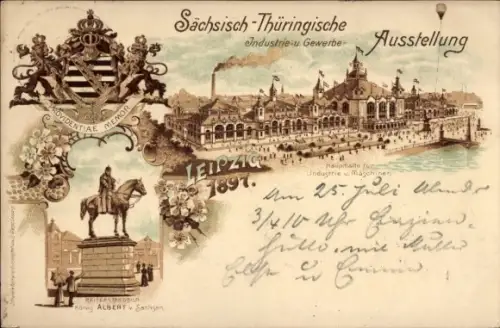 Sächsisch-Thüringische
Industrie- u. Gewerbe-
Ausstellung
PROVIDENTIAE MEMOR
LEIPZIG
1897.
Haupthalle für
Industrie u. Maschinen
REITERSTANDBILD
König ALBERT v. Sachsen
Am 25. Juli Abends
3/4 10 Uhr
mit
Else